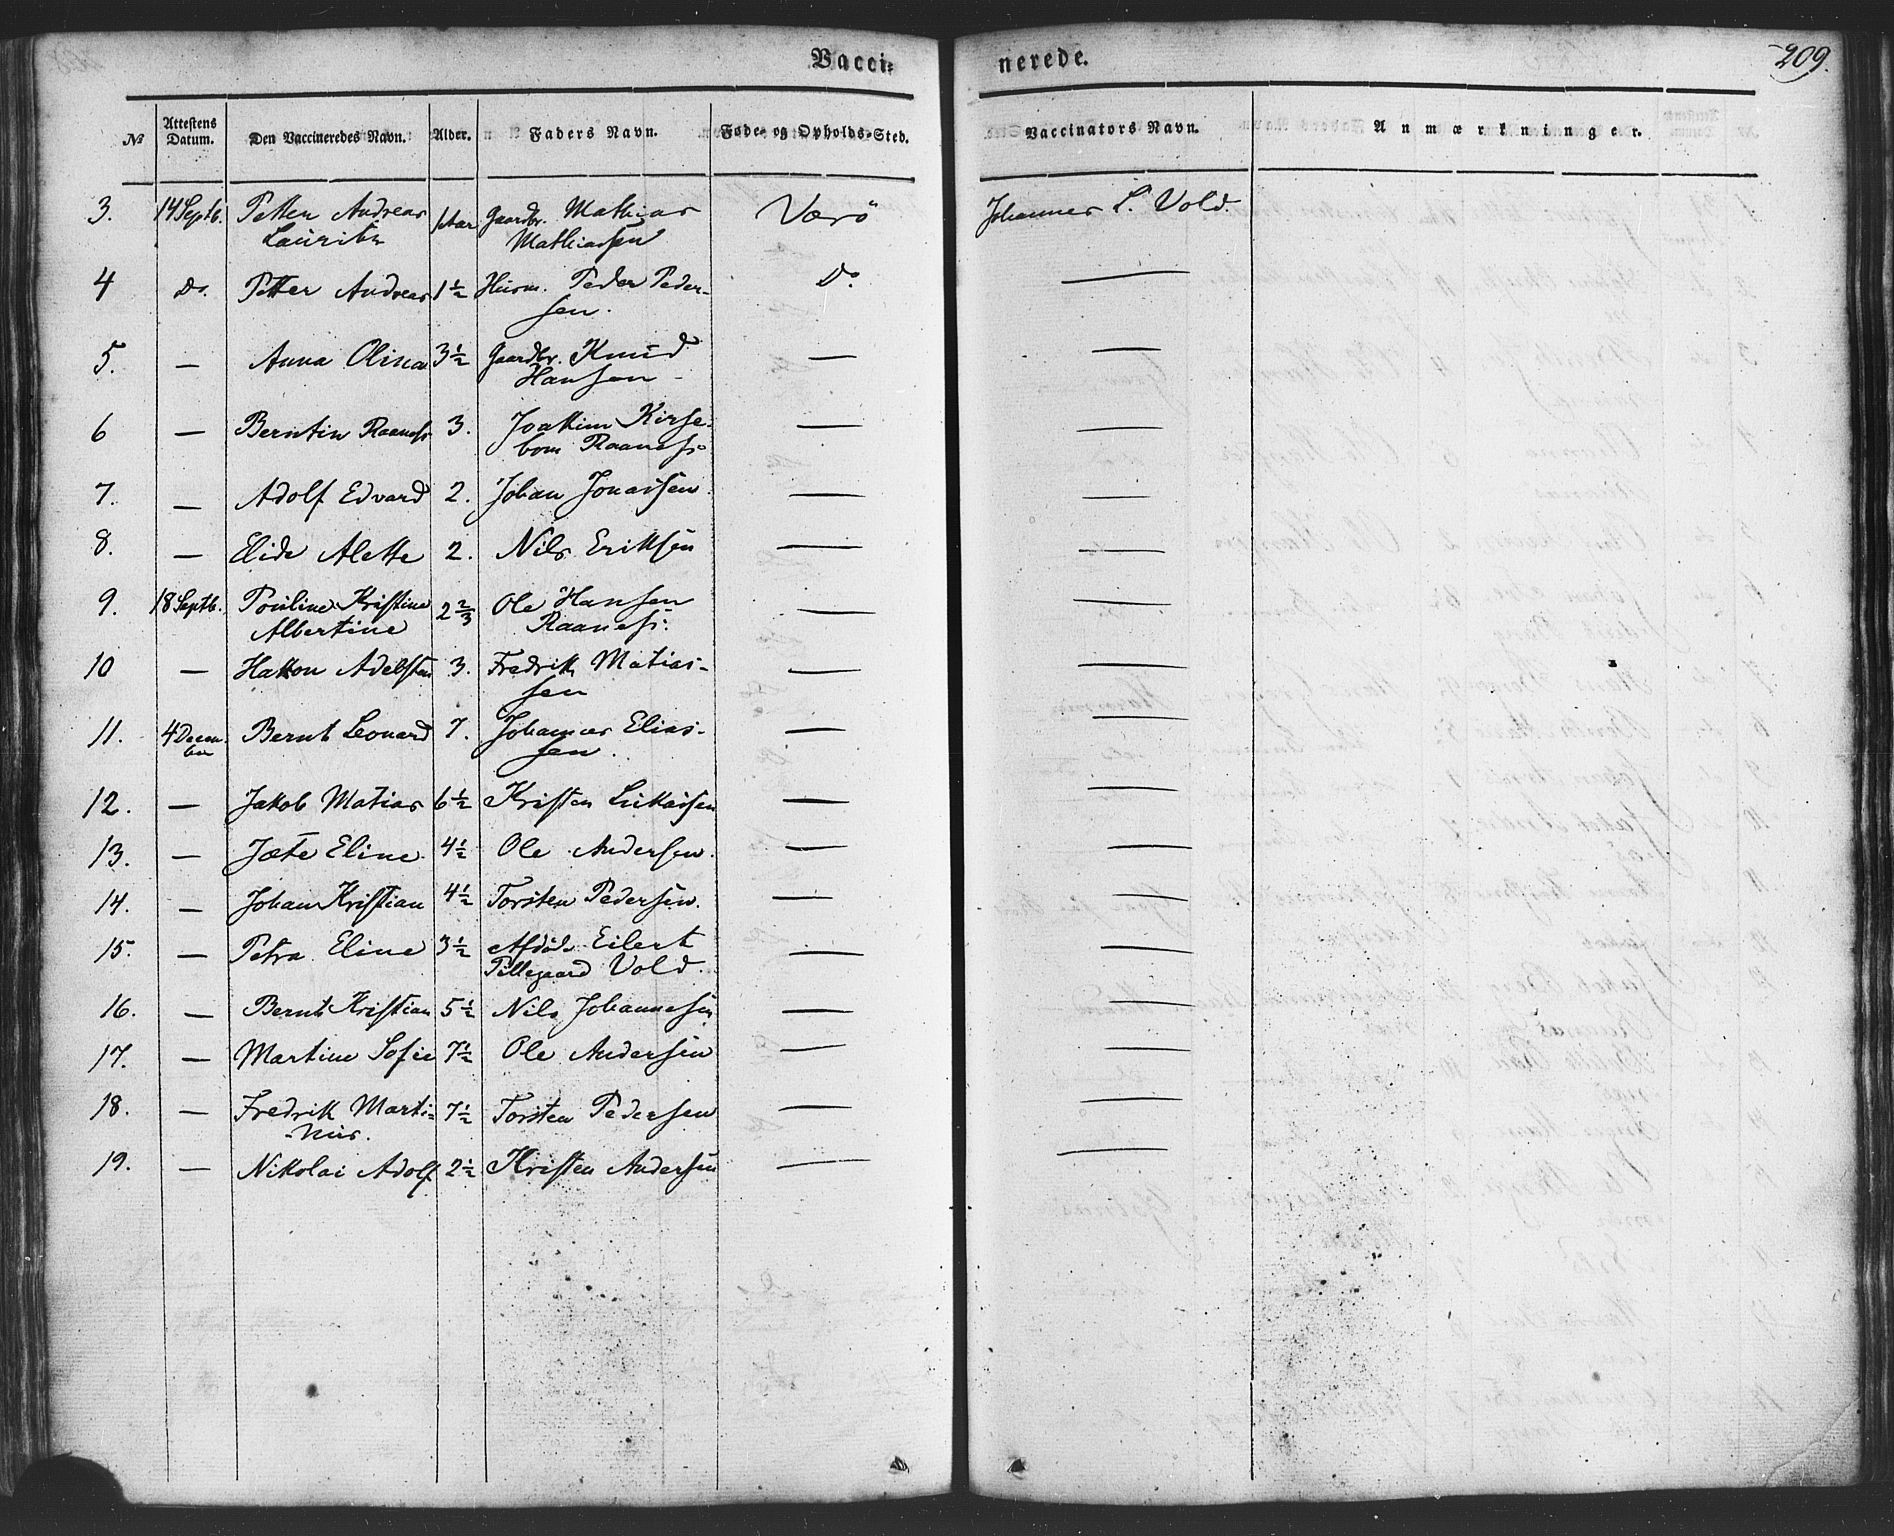 Vacci-
nerede.
209.
№ Attestens Datum. Den Vaccineredes Navn. Alder. Faders Navn. Føde- og Opholds-Sted. Vaccinators Navn. Anmærkninger.
3. 14 Septb. Petter Andreas 1 Aar Gaardbr. Mathias Værö Johannes L. Vold.
Lauritz Mathiassen
4 Do. Petter Andreas 1 1/2 Husm. Peder Peder- Do. —
sen.
5. — Anna Olina 3 1/2 Gaardbr. Knud — —
Hansen
6 — Berntin Raaness 3. Joakim Kirse- — —
bom Raaness
7. — Adolf Edvard 2. Johan Jonassen — —
8. — Elide Alette 2. Nils Eriksen — —
9. 18 Septb. Pouline Kristine 2 2/3 Ole Hansen — —
Albertine Raaness.
10 — Hakon Adelsten 3. Fredrik Matias- — —
sen
11. 4 Decem- Bernt Leonard 7. Johannes Elias- — —
ber sen.
12. — Jakob Matias 6 1/2 Kristen Lukassen — —
13. — Jæte Eline 4 1/2 Ole Andersen. — —
14. — Johan Kristian 4 1/2 Torsten Pedersen. — —
15. — Petra Eline 3 1/2 Afdöde Eilert — —
Pillegaard Vold.
16. — Bernt Kristian 5 1/2 Nils Johannesen — —
17. — Martine Sofie 7 1/2 Ole Andersen — —
18. — Fredrik Marti- 7 1/2 Torsten Pedersen — —
-nus.
19. — Nikolai Adolf 2 1/2 Kristen Andersen — —